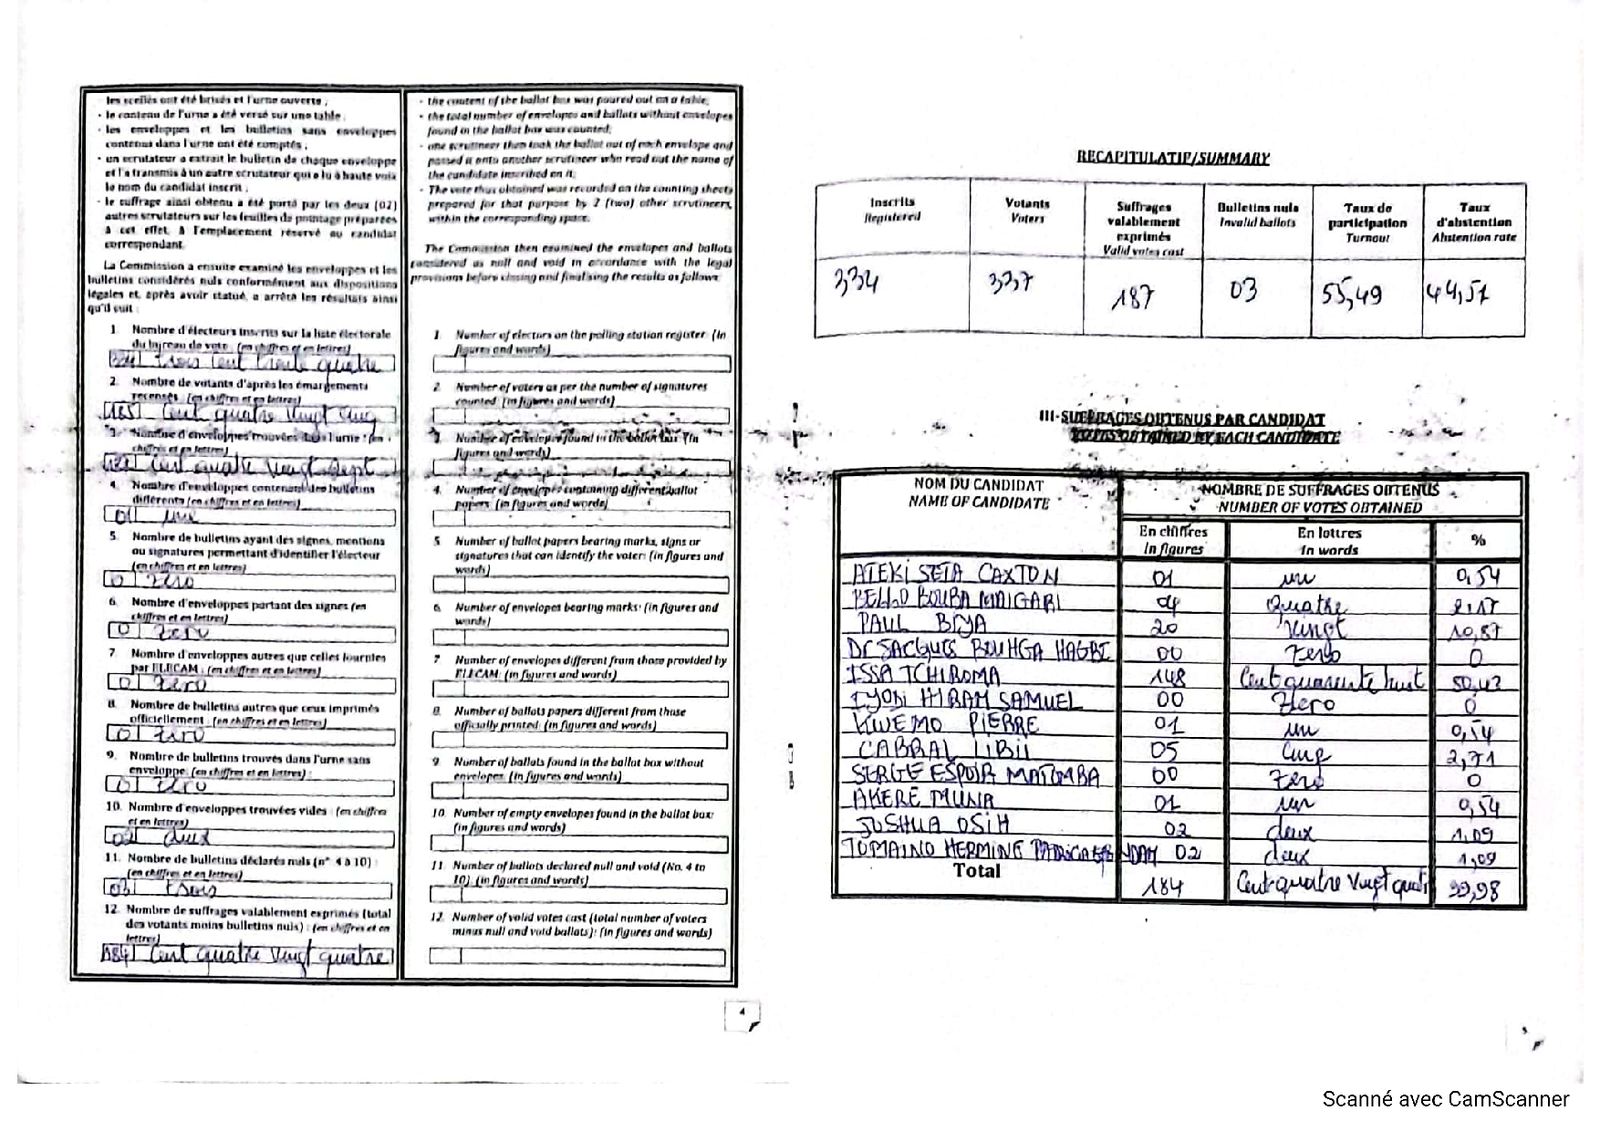 les scellés ont été brisés et l'urne ouverte ;
- le contenu de l'urne a été versé sur une table ;
- les enveloppes et les bulletins sans enveloppes
contenus dans l'urne ont été comptés ;
- un scrutateur a extrait le bulletin de chaque enveloppe
et l'a transmis à un autre scrutateur qui a lu à haute voix
le nom du candidat inscrit ;
- le suffrage ainsi obtenu a été porté par les deux (02)
autres scrutateurs sur les feuilles de pointage préparées
à cet effet, à l'emplacement réservé au candidat
correspondant.
La Commission a ensuite examiné les enveloppes et les
bulletins considérés nuls conformément aux dispositions
légales et, après avoir statué, a arrêté les résultats ainsi
qu'il suit :
1. Nombre d'électeurs inscrits sur la liste électorale
du bureau de vote : (en chiffres et en lettres)
334 trois cent trente quatre
2. Nombre de votants d'après les émargements
recensés : (en chiffres et en lettres)
185 Cent quatre vingt cinq
3. Nombre d'enveloppes trouvées dans l'urne : (en
chiffres et en lettres)
187 Cent quatre vingt sept
4. Nombre d'enveloppes contenant des bulletins
différents (en chiffres et en lettres)
01 un
5. Nombre de bulletins ayant des signes, mentions
ou signatures permettant d'identifier l'électeur
(en chiffres et en lettres)
0 Zero
6. Nombre d'enveloppes portant des signes (en
chiffres et en lettres)
0 Zero
7. Nombre d'enveloppes autres que celles fournies
par ELECAM : (en chiffres et en lettres)
0 Zero
8. Nombre de bulletins autres que ceux imprimés
officiellement : (en chiffres et en lettres)
0 Zero
9. Nombre de bulletins trouvés dans l'urne sans
enveloppe: (en chiffres et en lettres) :
0 Zero
10. Nombre d'enveloppes trouvées vides : (en chiffres
et en lettres)
02 deux
11. Nombre de bulletins déclarés nuls (n° 4 à 10) :
(en chiffres et en lettres)
03 trois
12. Nombre de suffrages valablement exprimés (total
des votants moins bulletins nuls) : (en chiffres et en
lettres)
184 Cent quatre vingt quatre
- the content of the ballot box was poured out on a table;
- the total number of envelopes and ballots without envelopes
found in the ballot box was counted;
- one scrutineer then took the ballot out of each envelope and
passed it onto another scrutineer who read out the name of
the candidate inscribed on it;
- The vote thus obtained was recorded on the counting sheets
prepared for that purpose by 2 (two) other scrutineers,
within the corresponding space.
The Commission then examined the envelopes and ballots
considered as null and void in accordance with the legal
provisions before closing and finalising the results as follows:
1. Number of electors on the polling station register: (in
figures and words)
2. Number of voters as per the number of signatures
counted: (in figures and words)
3. Number of envelopes found in the ballot box: (in
figures and words)
4. Number of envelopes containing different ballot
papers: (in figures and words)
5. Number of ballot papers bearing marks, signs or
signatures that can identify the voter: (in figures and
words)
6. Number of envelopes bearing marks: (in figures and
words)
7. Number of envelopes different from those provided by
ELECAM: (in figures and words)
8. Number of ballots papers different from those
officially printed: (in figures and words)
9. Number of ballots found in the ballot box without
envelopes: (in figures and words)
10. Number of empty envelopes found in the ballot box:
(in figures and words)
11. Number of ballots declared null and void (No. 4 to
10): (in figures and words)
12. Number of valid votes cast (total number of voters
minus null and void ballots): (in figures and words)
4
RECAPITULATIF/SUMMARY
Inscrits Registered | Votants Voters | Suffrages valablement exprimés Valid votes cast | Bulletins nuls Invalid ballots | Taux de participation Turnout | Taux d'abstention Abstention rate
334 | 337 | 187 | 03 | 55,49 | 44,51
III-SUFFRAGES OBTENUS PAR CANDIDAT
VOTES OBTAINED BY EACH CANDIDATE
NOM DU CANDIDAT NAME OF CANDIDATE | NOMBRE DE SUFFRAGES OBTENUS NUMBER OF VOTES OBTAINED
En chiffres In figures | En lettres In words | %
ATEKI SETA CAXTON | 01 | un | 0,54
BELLO BOUBA MAIGARI | 04 | Quatre | 2,17
PAUL BIYA | 20 | Vingt | 10,87
Dr JACQUES BOUHGA HAGBE | 00 | Zero | 0
ISSA TCHIROMA | 148 | Cent quarante huit | 80,43
IYODI HIRAM SAMUEL | 00 | Zero | 0
KWEMO PIERRE | 01 | un | 0,54
CABRAL LIBII | 05 | Cinq | 2,71
SERGE ESPOIR MATOMBA | 00 | Zero | 0
AKERE MUNA | 01 | un | 0,54
JOSHUA OSIH | 02 | deux | 1,09
TOMAINO HERMINE PATRICIA NDAM | 02 | deux | 1,09
Total | 184 | Cent quatre vingt quatr | 99,98
Scanné avec CamScanner